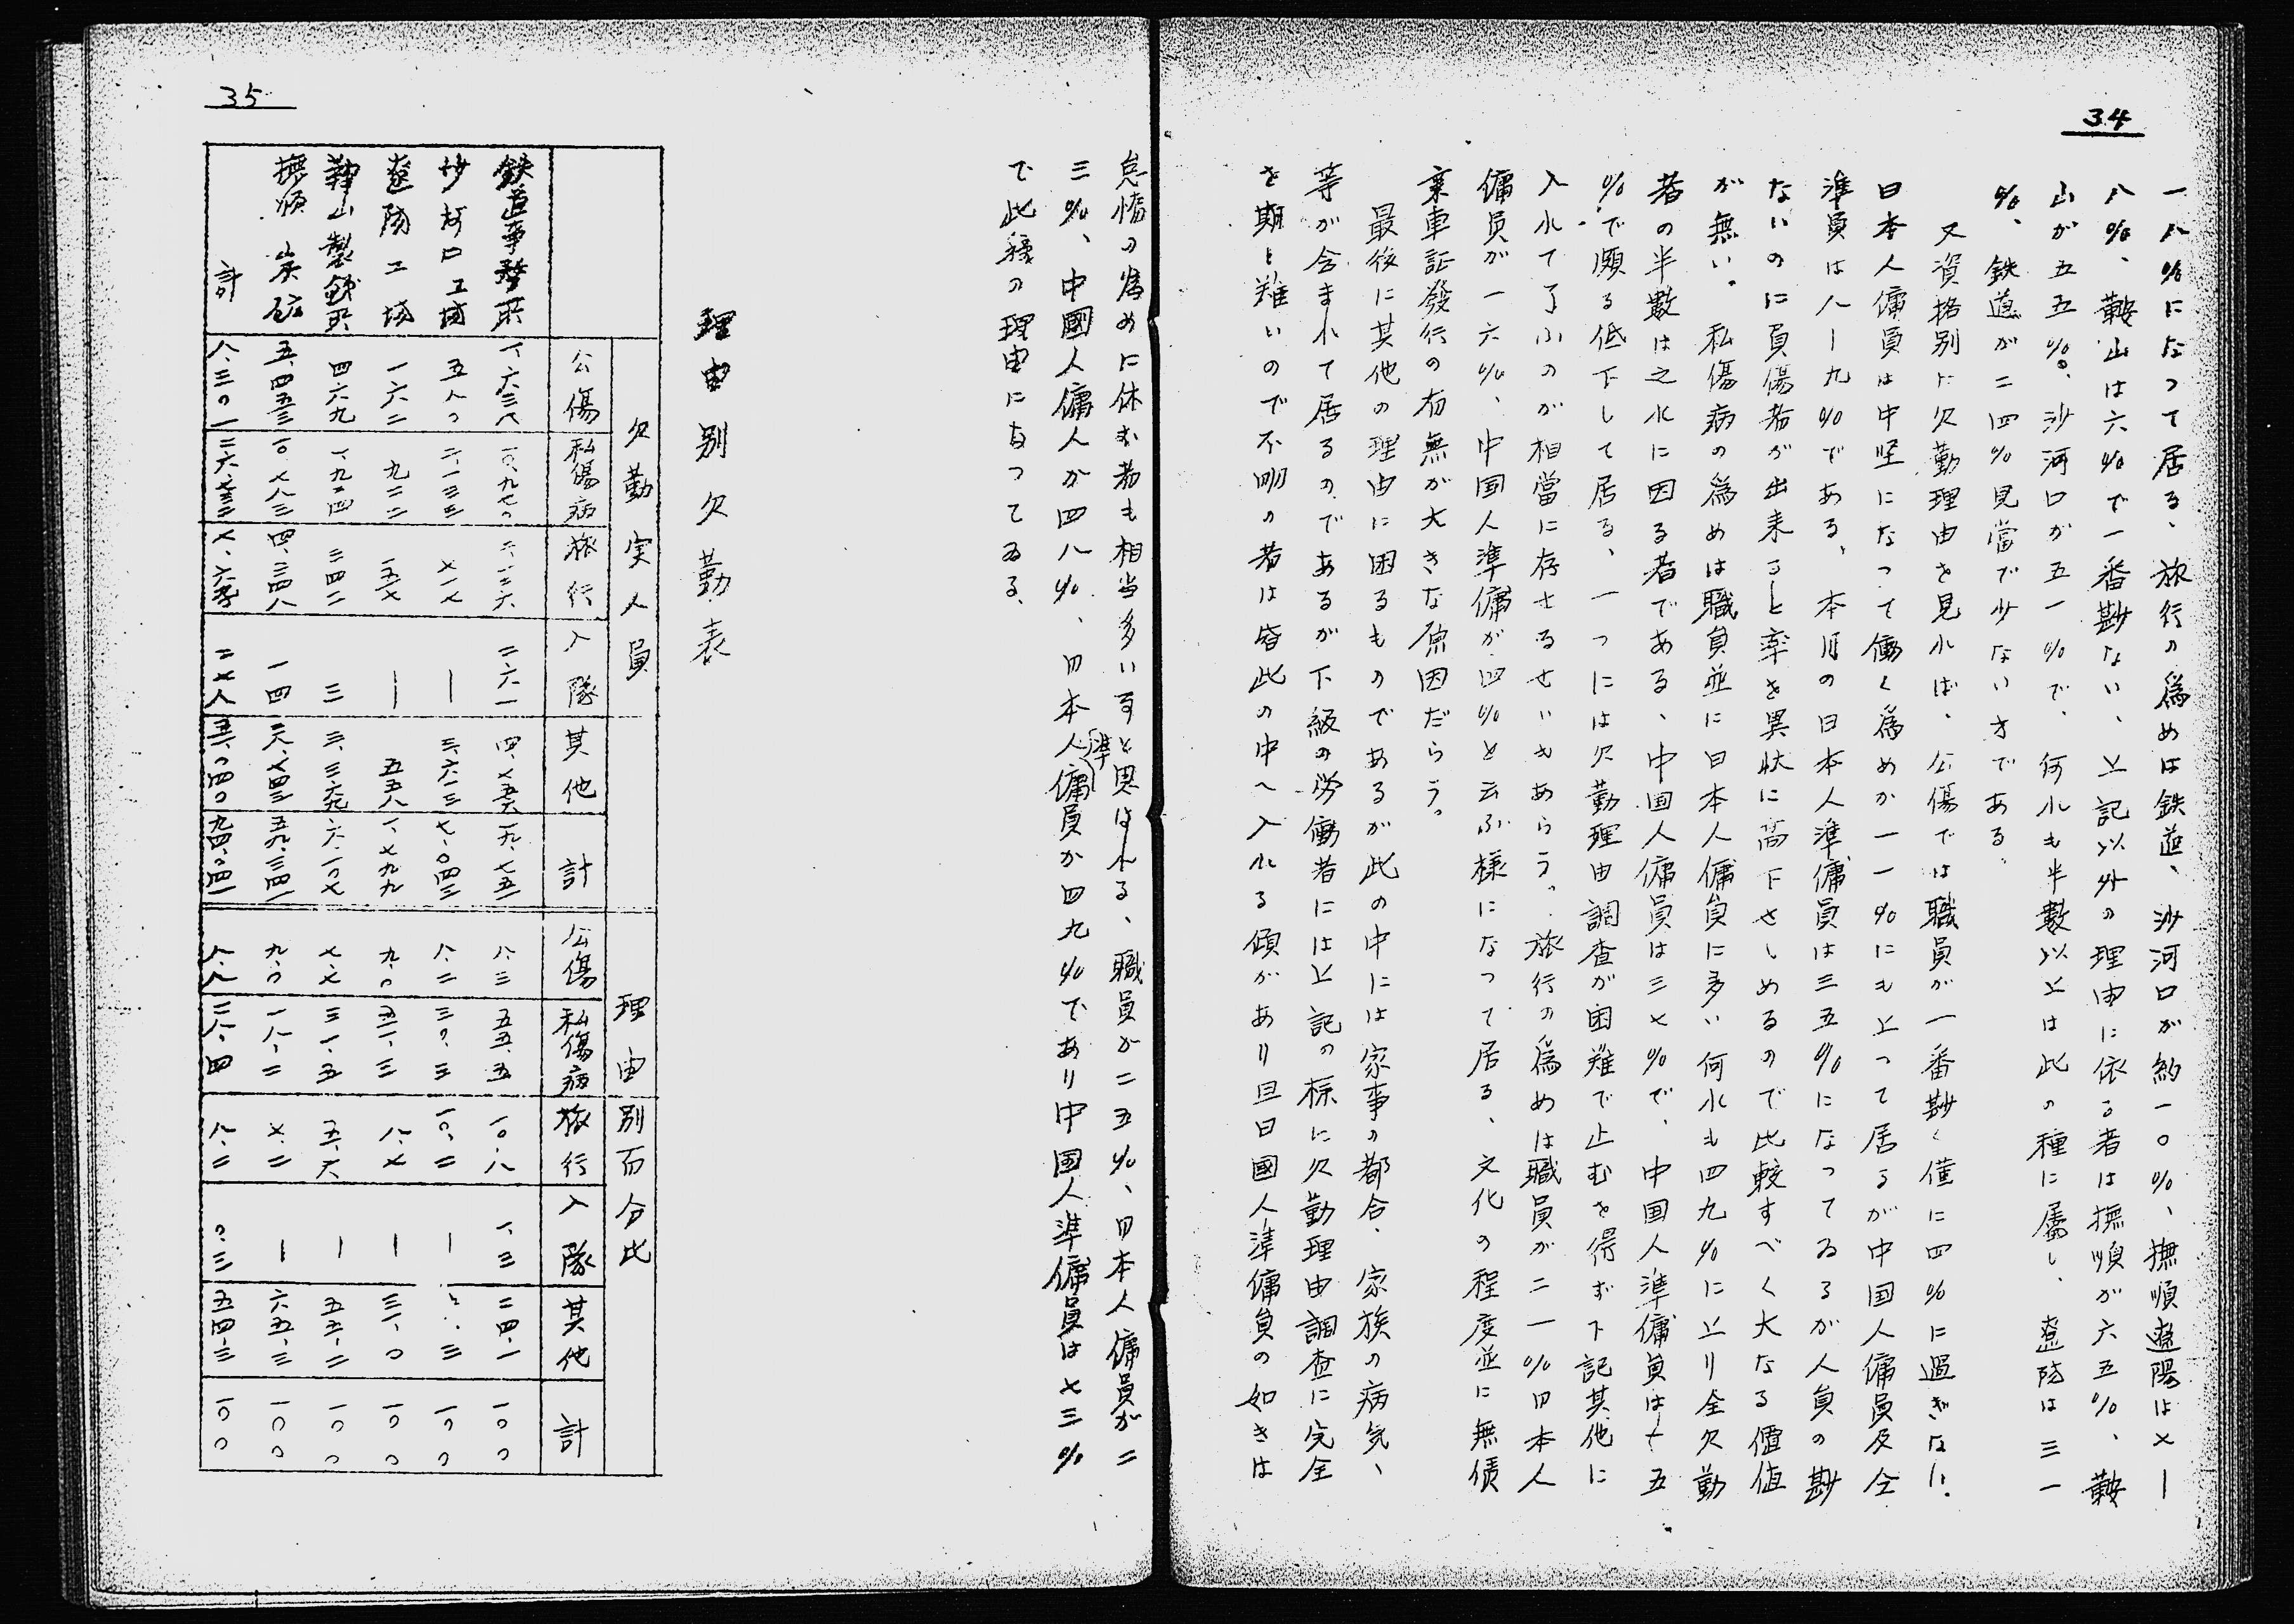 34
一八%になって居る、旅行の為めは鉄道、沙河口が約一〇%、撫順遼陽は七ー
八%、鞍山は六%で一番尠ない、上記以外の理由に依る者は撫順が六五%、鞍
山が五五%。沙河口が五一%で、何れも半數以上は此の種に属し、遼陽は三一
%、鉄道が二四%見當で少ない方である、
又資格別に欠勤理由を見れば、公傷では職員が一番尠く僅に四%に過ぎない.
日本人傭員は中堅になって働く為めか一一%にも上って居るが中国人傭員及仝
準員は八ー九%である、本月の日本人準傭員は三五%になってゐるが人員の尠
ないのに負傷者が出来ると率を異状に高下せしめるので比較すべく大なる価値
が無い。私傷病の為めは職員並に日本人傭員に多い何れも四九%に上り全欠勤
者の半數は之れに因る者である、中国人傭員は三七%で、中国人準傭員は十五
%で頗る低下して居る、一つには欠勤理由調査が困難で止むを得ず下記其他に
入れて了ふのが相當に存さるせいもあらう。旅行の為めは職員が二一%日本人
傭員が一六%、中国人準傭が四%と云ふ様になって居る、文化の程度並に無賃
乗車証發行の有無が大きな原因だらう。
最後に其他の理由に因るものであるが此の中には家事の都合、家族の病気、
等が含まれて居るのであるが下級の労働者には上記の様に欠勤理由調査に完全
を期し難いので不明の者は皆此の中へ入れる傾があり且日國人準傭員の如きは
35
怠惰の為めに休む者も相当多い事と思はれる、職員が二五%、日本人傭員が二
三%、中國人傭人か四八%、日本人準傭員か四九%であり中国人準傭員は七三%
で此種の理由になってゐる、
理由別欠勤表
欠勤実人員 理由別百分比
公傷 私傷病 旅行 入隊 其他 計 公傷 私傷病 旅行 入隊 其他 計
鉄道事務所 一、六三八 一〇、九七〇 二、一三六 二六一 四、七五六 一九、七五一 八.三 五五.五 一〇.八 一.三 二四.一 一〇〇
沙河口工場 五八〇 二、一三三 七一七 ー 三、六一三 七、〇四三 八.二 三〇.三 一〇.二 ー 一〇〇
遼陽工場 一六二 九二二 一五七 ー 五五八 一、七九九 九.〇 五一.三 八.七 ー 三一.〇 一〇〇
鞍山製鉄所 四六九 一、九二四 三四二 三 三、三六九 六、一〇七 七.七 三一.五 五.六 ー 五五.二 一〇〇
撫順炭砿 五、四五三 一〇、七八三 四、三四八 一四 三八、七四三 五九、三四一 九.〇 一八.二 七.二 ー 六五.三 一〇〇
計 八、三〇一 二六、七三二 二七八 五一、〇四〇 九四、〇四一 八.八 二八.四 八.二 〇.三 五四.三 一〇〇